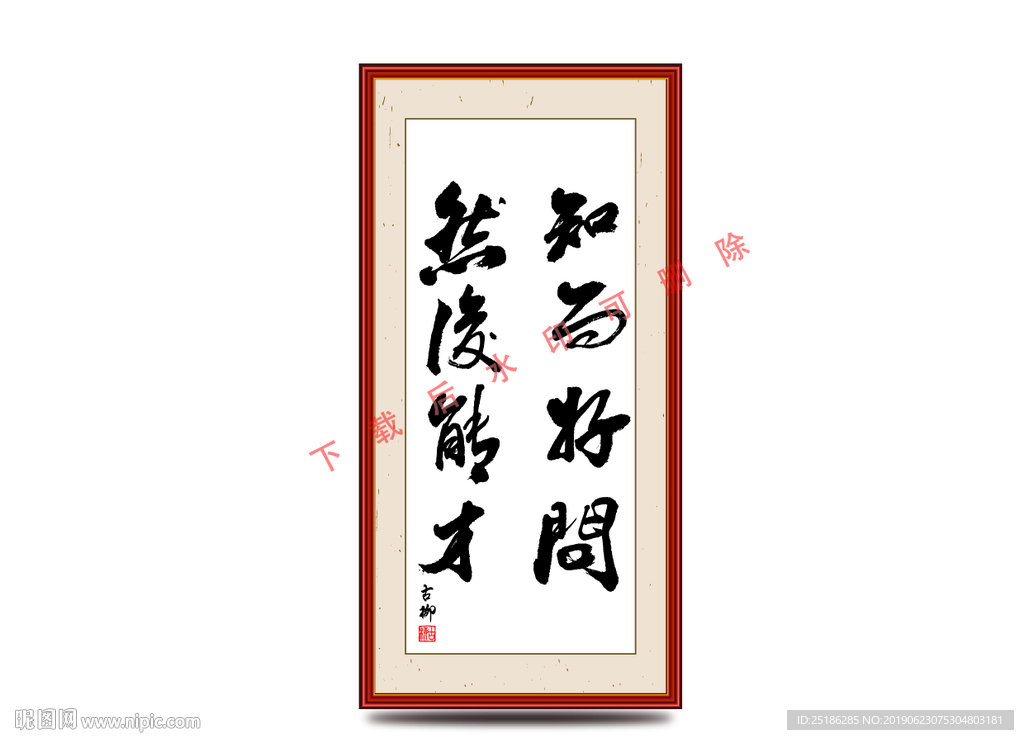 知而好問
然後能才
古柳
下载后水印可删除
昵图网 www.nipic.com
ID:25186285 NO:20190623075304803181